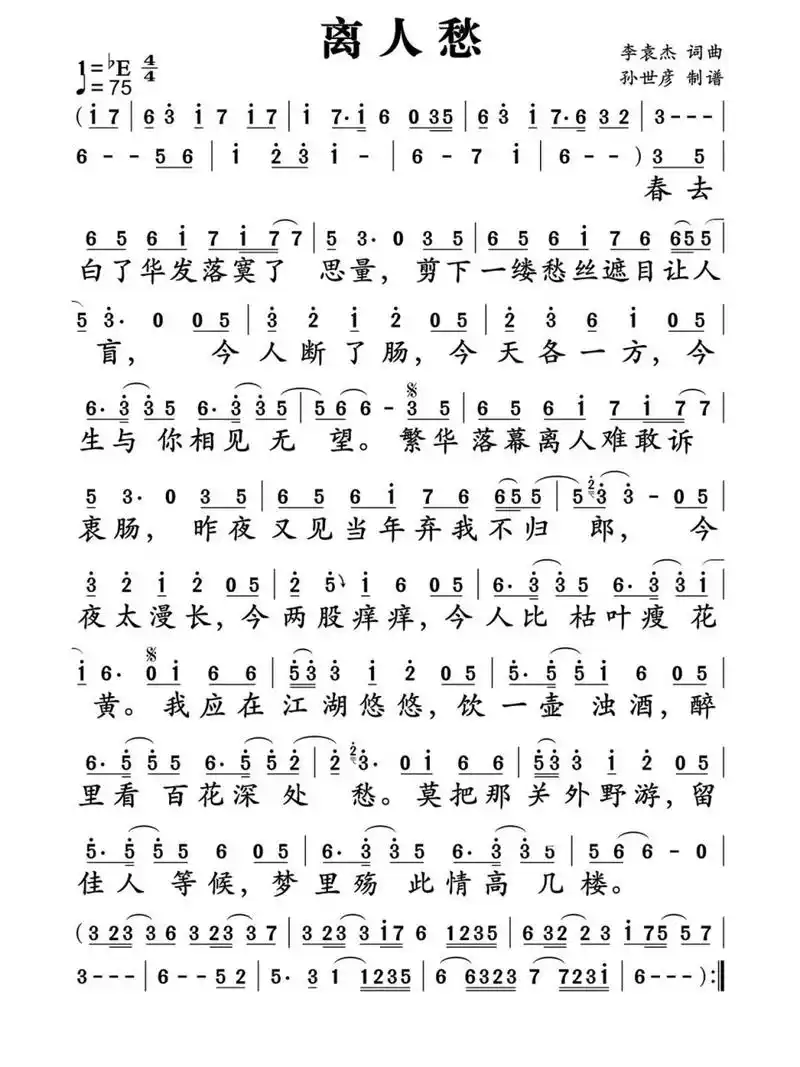 离人愁
1=♭E 4/4
♩=75
李袁杰 词曲
孙世彦 制谱
(i 7 | 6 3̇ i 7 i 7 | i 7·i 6 0 35 | 6 3̇ i 7·6 3 2 | 3 - - - |
6 - - 5 6 | i 2̇ 3̇ i - | 6 - 7 i | 6 - - ) 3 5 |
春去
6 5 6 i 7 i 7 7 | 5 3· 0 3 5 | 6 5 6 i 7 6 6 5 5 |
白了华发落寞了 思量，剪下一缕愁丝遮目让人
5 3̇· 0 0 5 | 3̇ 2̇ i 2̇ 0 5 | 2̇ 3̇ 6 i 0 5 |
盲，今人断了肠，今天各一方，今
6· 3̇ 3̇ 5 6· 3̇ 3̇ 5 | 5 6 6 - 3 5 | 6 5 6 i 7 i 7 7 |
生与 你相见 无 望。繁华落幕离人难敢诉
5 3· 0 3 5 | 6 5 6 i 7 6 6 5 5 | 5 2̇ 3̇ 3̇ - 0 5 |
衷肠，昨夜又见当年弃我不归 郎，今
3̇ 2̇ i 2̇ 0 5 | 2̇ 5̇ i 6 0 5 | 6· 3̇ 3̇ 5 6· 3̇ 3̇ i |
夜太漫长，今两股痒痒，今人比 枯叶瘦 花
i 6· 0 i 6 6 | 5̇ 3̇ 3̇ i 2̇ 0 5 | 5̇· 5̇ 5̇ i 6 0 5 |
黄。我应在江湖悠悠，饮一壶 浊酒，醉
6· 5̇ 5̇ 5 6· 5̇ 5̇ 2̇ | 2̇ 2̇ 3̇· 0 i 6 6 | 5̇ 3̇ 3̇ i 2̇ 0 5 |
里看 百花深 处 愁。莫把那关外野游，留
5̇· 5̇ 5̇ 5 6 0 5 | 6· 3̇ 3̇ 5 6· 3̇ 3̇ 5 | 5 6 6 - 0 |
佳人 等候，梦里殇 此情高 几楼。
(3 23 3 6 3 23 3 7 | 3 23 i7 6 1235 | 6 32 2 3 i 75 5 7 |
3 - - - | 6 - - 5 2 | 5· 3 1 1235 | 6 6323 7 723i | 6 - - - ) :‖